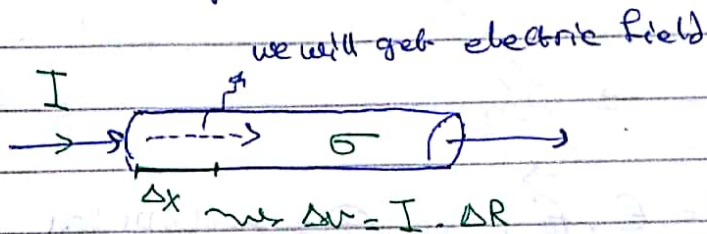 we will get electric field
I
σ
Δx Δv = I . ΔR